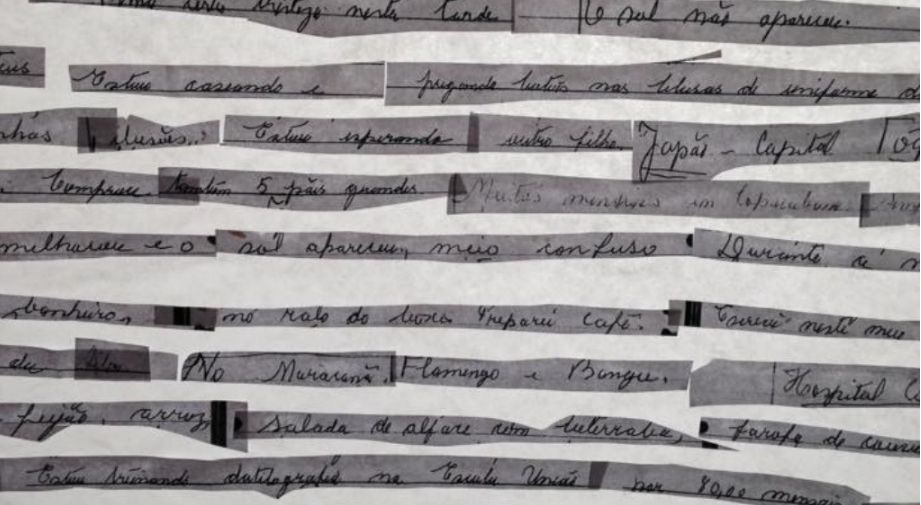 nesta tarde O sol não apareceu.
Estive caseando e pregando botões nas blusas de uniforme
ilusões... Estive esperando outro filho. Japão - Capital
Comprou também 5 pães grandes Muitos mendigos em Copacabana
melharau e o sol apareceu, meio confuso Durante a
banheiro, no ralo do boxe Preparei café. Escrevi neste meu
No Maracanã. Flamengo e Bangu. Hospital
feijão, arroz, salada de alface com beterraba, farofa de
Estou treinando datilografia na Escola União por 80,00